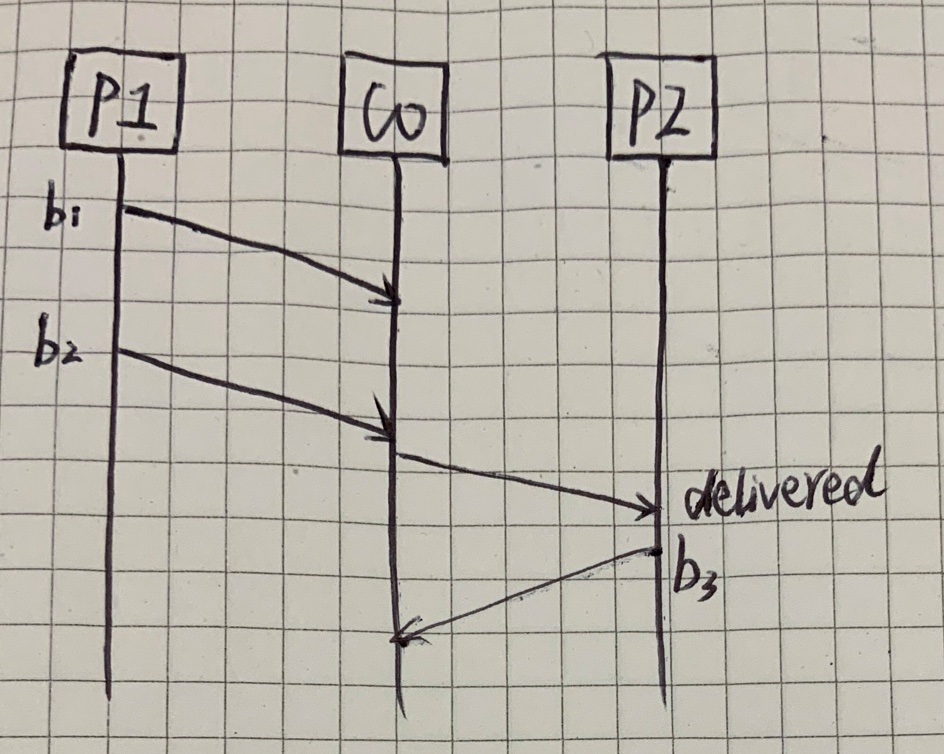 P1
CO
P2
b1
b2
delivered
b3